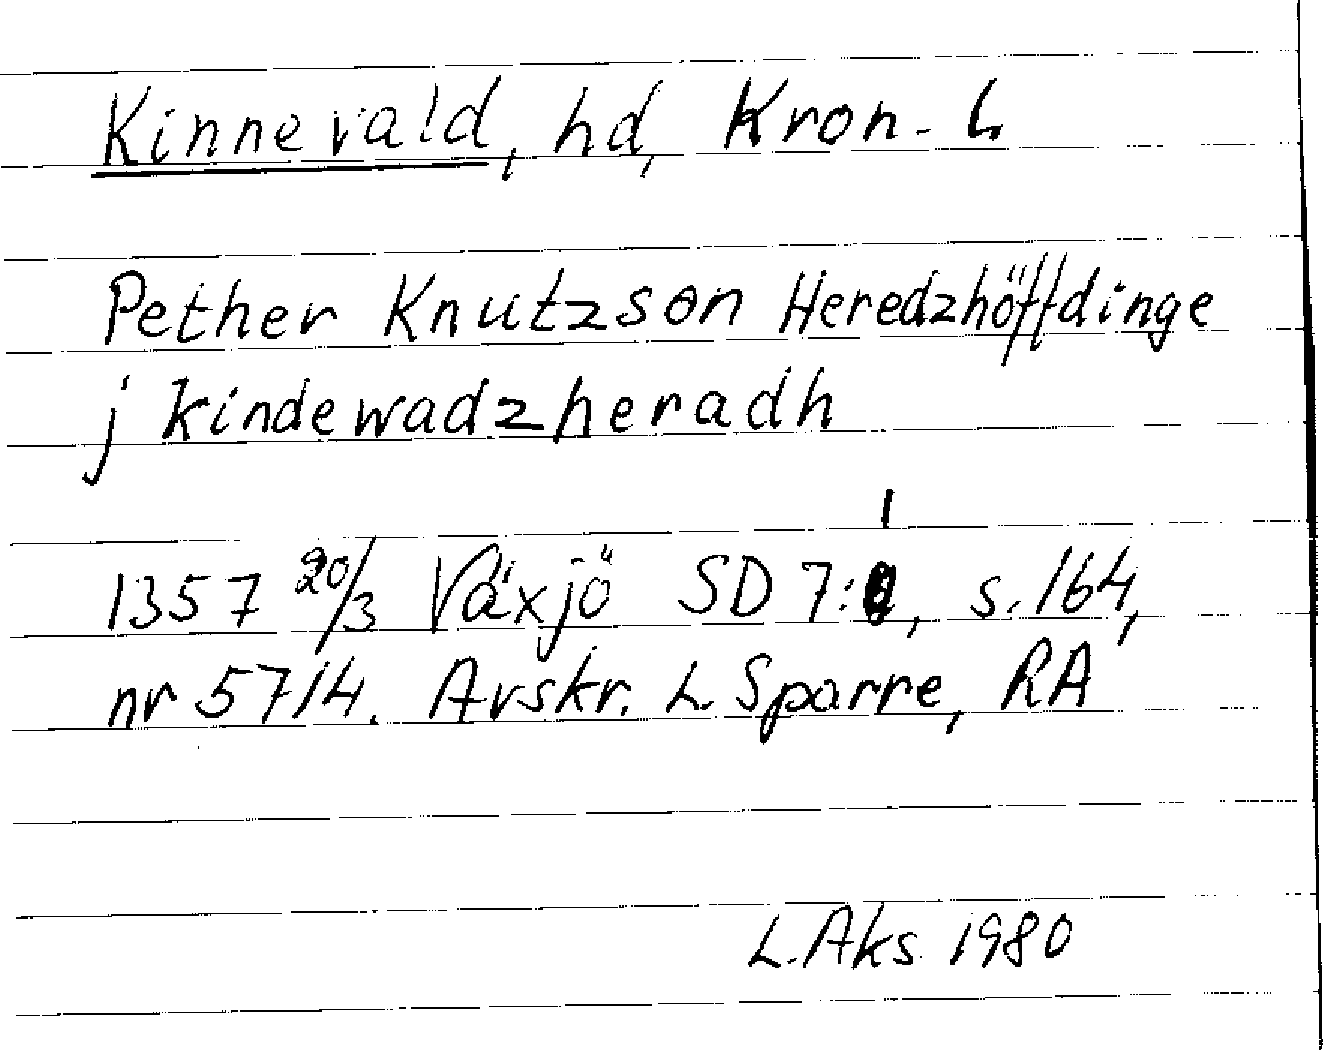 Kinnevald, hd, Kron. L
Pether Knutzson Heredzhöffdinge
j kindewadzheradh
1357 20/3 Växjö SD 7:1, s. 164,
nr 5714. Avskr. L Sparre, RA
L. Aks. 1980